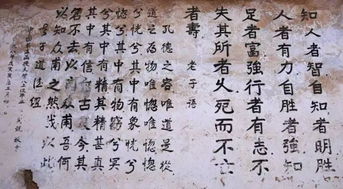 知人者智自知者明勝
人者有力自勝者強知
足者富強行者有志不
失其所者久死而不亡
者壽 老子語
孔德之容唯道是從
道之為物唯恍唯惚惚
兮恍兮其中有象恍兮
惚兮其中有物窈兮冥
兮其中有精其精甚真
其中有信自古及今其
名不去以閱眾甫吾何
以知眾甫之然哉以此
老子道德經